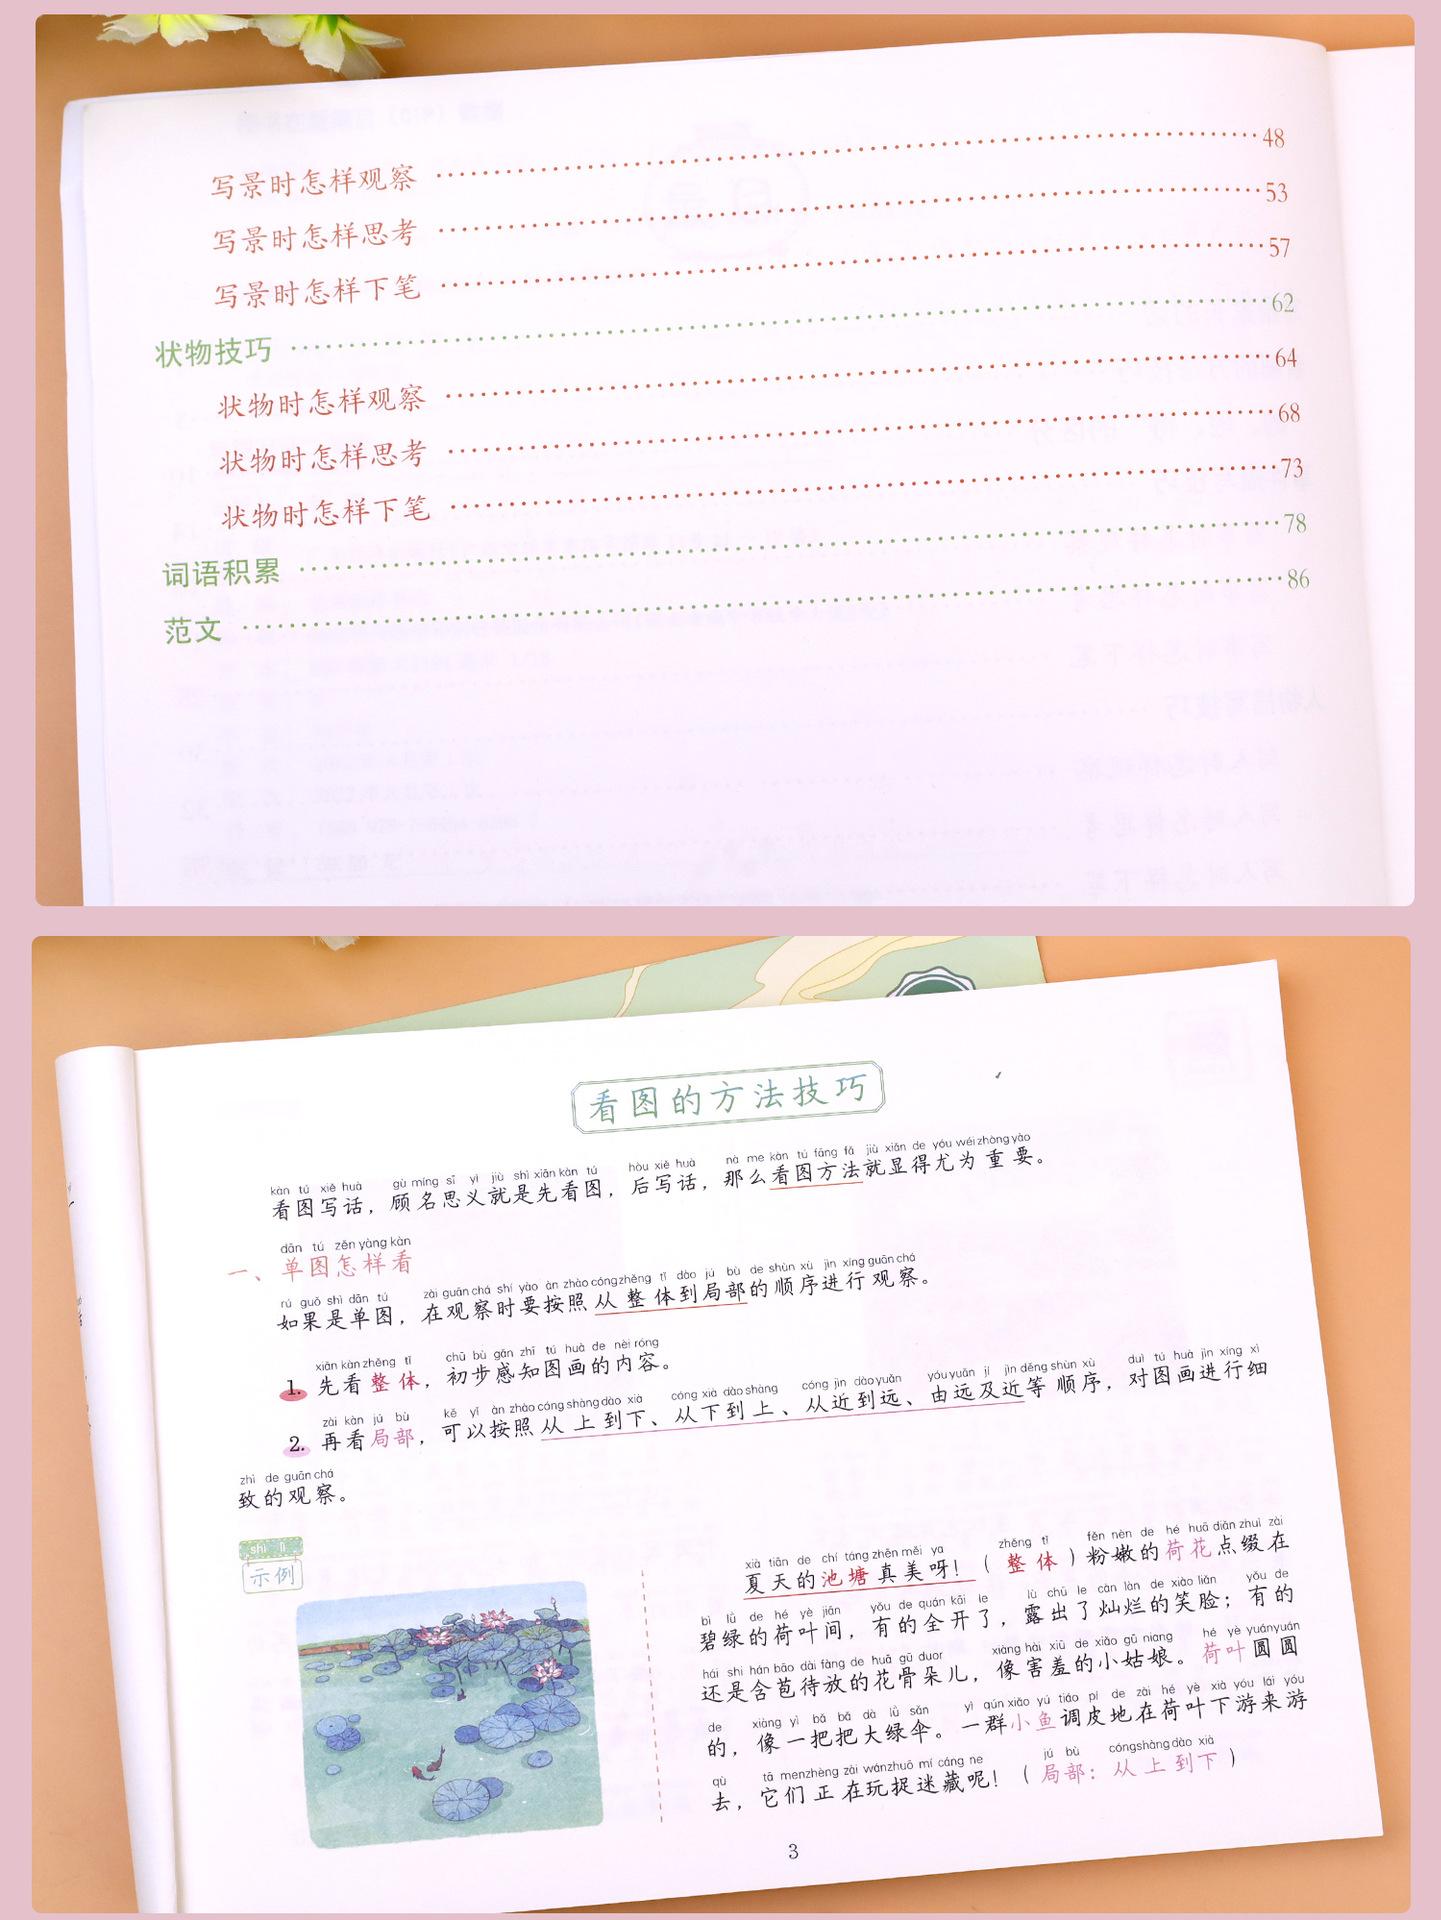 写景时怎样观察 48
写景时怎样思考 53
写景时怎样下笔 57
状物技巧 62
状物时怎样观察 64
状物时怎样思考 68
状物时怎样下笔 73
词语积累 78
范文 86
看图的方法技巧
kàn tú xiě huà gù míng sī yì jiù shì xiān kàn tú hòu xiě huà nà me kàn tú fāng fǎ jiù xiǎn de yóu wéi zhòng yào
看图写话，顾名思义就是先看图，后写话，那么看图方法就显得尤为重要。
dān tú zěn yàng kàn
一、单图怎样看
rú guǒ shì dān tú zài guān chá shí yào àn zhào cóng zhěng tǐ dào jú bù de shùn xù jìn xíng guān chá
如果是单图，在观察时要按照从整体到局部的顺序进行观察。
xiān kàn zhěng tǐ chū bù gǎn zhī tú huà de nèi róng
1. 先看整体，初步感知图画的内容。
zài kàn jú bù kě yǐ àn zhào cóng shàng dào xià cóng xià dào shàng cóng jìn dào yuǎn yóu yuǎn jí jìn děng shùn xù duì tú huà jìn xíng xì
2. 再看局部，可以按照从上到下、从下到上、从近到远、由远及近等顺序，对图画进行细
zhì de guān chá
致的观察。
shì lì
示例
xià tiān de chí táng zhēn měi ya zhěng tǐ fěn nèn de hé huā diǎn zhuì zài
夏天的池塘真美呀！（整体）粉嫩的荷花点缀在
bì lǜ de hé yè jiān yǒu de quán kāi le lù chū le càn làn de xiào liǎn yǒu de
碧绿的荷叶间，有的全开了，露出了灿烂的笑脸；有的
hái shì hán bāo dài fàng de huā gū duor xiàng hài xiū de xiǎo gū niang hé yè yuán yuán
还是含苞待放的花骨朵儿，像害羞的小姑娘。荷叶圆圆
de xiàng yì bǎ bǎ dà lǜ sǎn yì qún xiǎo yú tiáo pí de zài hé yè xià yóu lái yóu
的，像一把把大绿伞。一群小鱼调皮地在荷叶下游来游
qù tā men zhèng zài wán zhuō mí cáng ne jú bù cóng shàng dào xià
去，它们正在玩捉迷藏呢！（局部：从上到下）
3